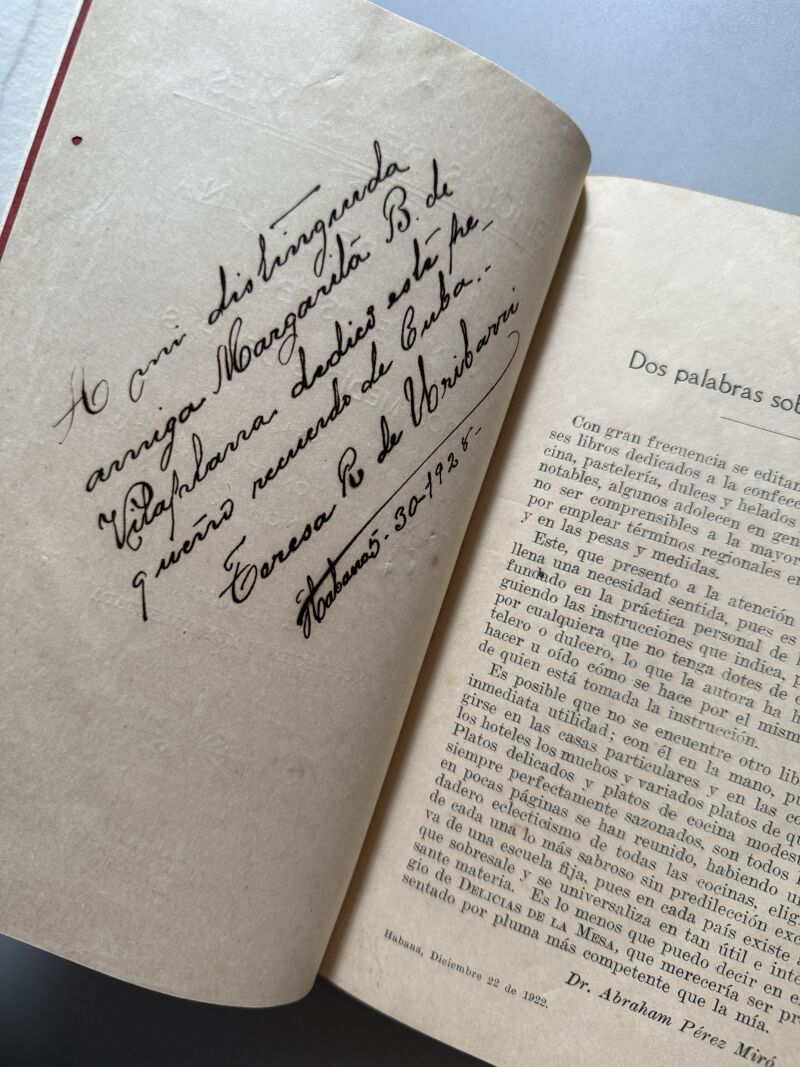 A mi distinguida
amiga Margarita B. de
Vilaplana dedico esté pe-
queño recuerdo de Cuba.-
Teresa R de Uribarri
Habana 5-30-1928-
Dos palabras sob
Con gran frecuencia se editan
ses libros dedicados a la confecc
cina, pastelería, dulces y helados
notables, algunos adolecen en gen
no ser comprensibles a la mayor
por emplear términos regionales en
y en las pesas y medidas.
Este, que presento a la atención
llena una necesidad sentida, pues es
fundado en la práctica personal de
guiendo las instrucciones que indica, p
por cualquiera que no tenga dotes de c
telero o dulcero, lo que la autora ha h
hacer u oído cómo se hace por el mism
de quien está tomada la instrucción.
Es posible que no se encuentre otro lib
inmediata utilidad; con él en la mano, pu
girse en las casas particulares y en las co
los hoteles los muchos y variados platos de qu
Platos delicados y platos de cocina modest
siempre perfectamente sazonados, son todos l
en pocas páginas se han reunido, habiendo un
dadero eclecticismo de todas las cocinas, elig
de cada una lo más sabroso sin predilección exc
va de una escuela fija, pues en cada país existe a
que sobresale y se universaliza en tan útil e inte
sante materia. Es lo menos que puedo decir en e
gio de DELICIAS DE LA MESA, que merecería ser pr
sentado por pluma más competente que la mía.
Habana, Diciembre 22 de 1922.
Dr. Abraham Pérez Miró